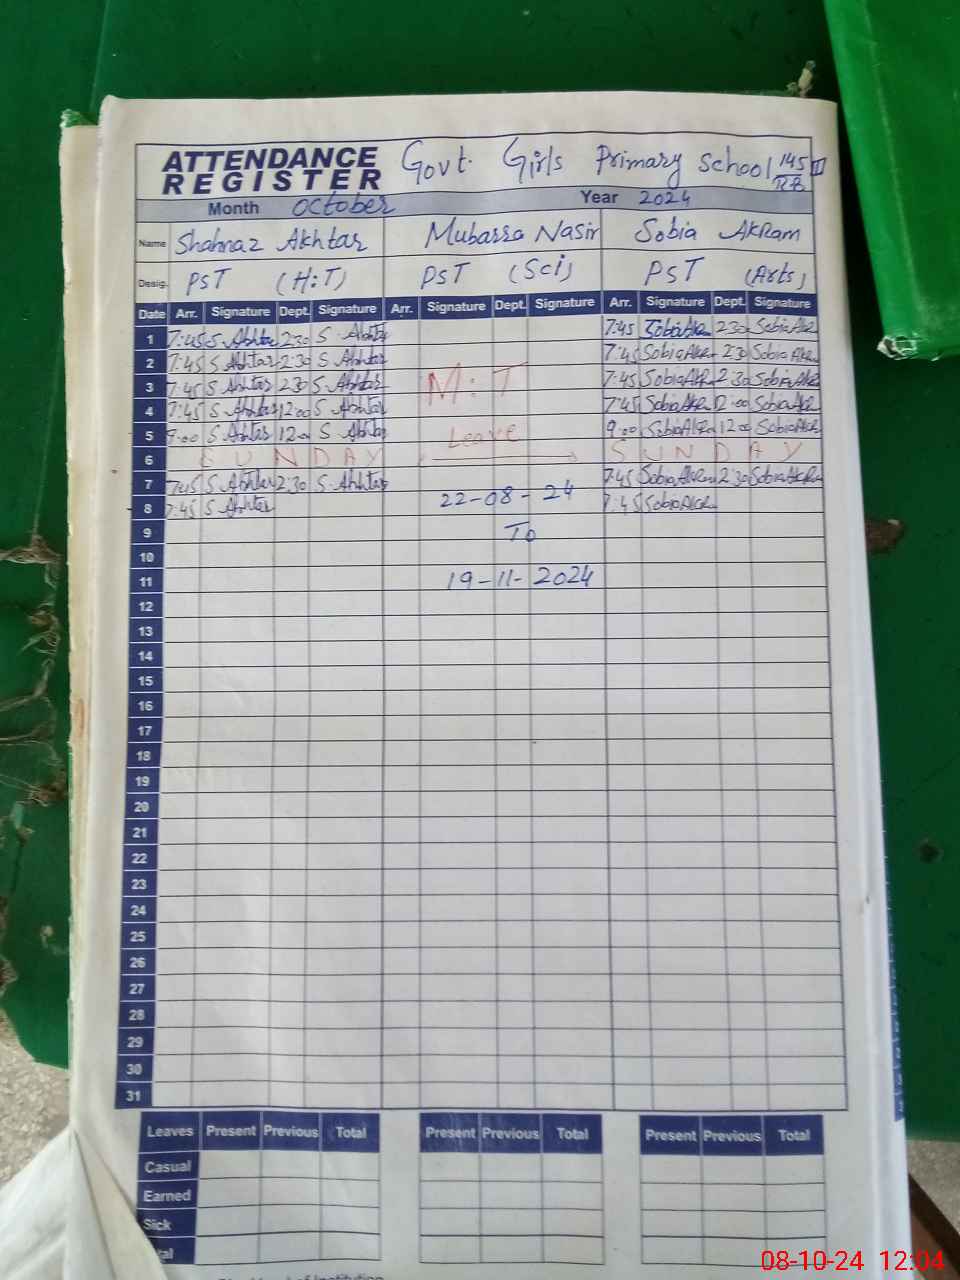 ATTENDANCE REGISTER Govt. Girls Primary School 145/RB II
Month October Year 2024
Name Shahnaz Akhtar Mubassa Nasir Sobia Akram
Desig. PST (H:T) PST (Sci) PST (Arts)
Date Arr. Signature Dept. Signature Arr. Signature Dept. Signature Arr. Signature Dept. Signature
1 7:45 S. Akhtar 2:30 S. Akhtar 7:45 Sobia Akr 2:30 Sobia Akr
2 7:45 S Akhtar 2:30 S. Akhtar 7:45 Sobia Akr 2:30 Sobia Akr
3 7:45 S Akhtar 2:30 S. Akhtar M:T 7:45 Sobia Akr 2:30 Sobia Akr
4 7:45 S Akhtar 12:00 S Akhtar 7:45 Sobia Akr 12:00 Sobia Akr
5 9:00 S Akhtar 12:00 S Akhtar Leave 9:00 Sobia Akr 12:00 Sobia Akr
6 SUNDAY SUNDAY
7 7:45 S Akhtar 2:30 S. Akhtar 22-08-24 7:45 Sobia Akram 2:30 Sobia Akram
8 7:45 S Akhtar 7:45 Sobia Akr
9 To
10
11 19-11-2024
12
13
14
15
16
17
18
19
20
21
22
23
24
25
26
27
28
29
30
31
Leaves Present Previous Total Present Previous Total Present Previous Total
Casual
Earned
Sick
08-10-24 12:04